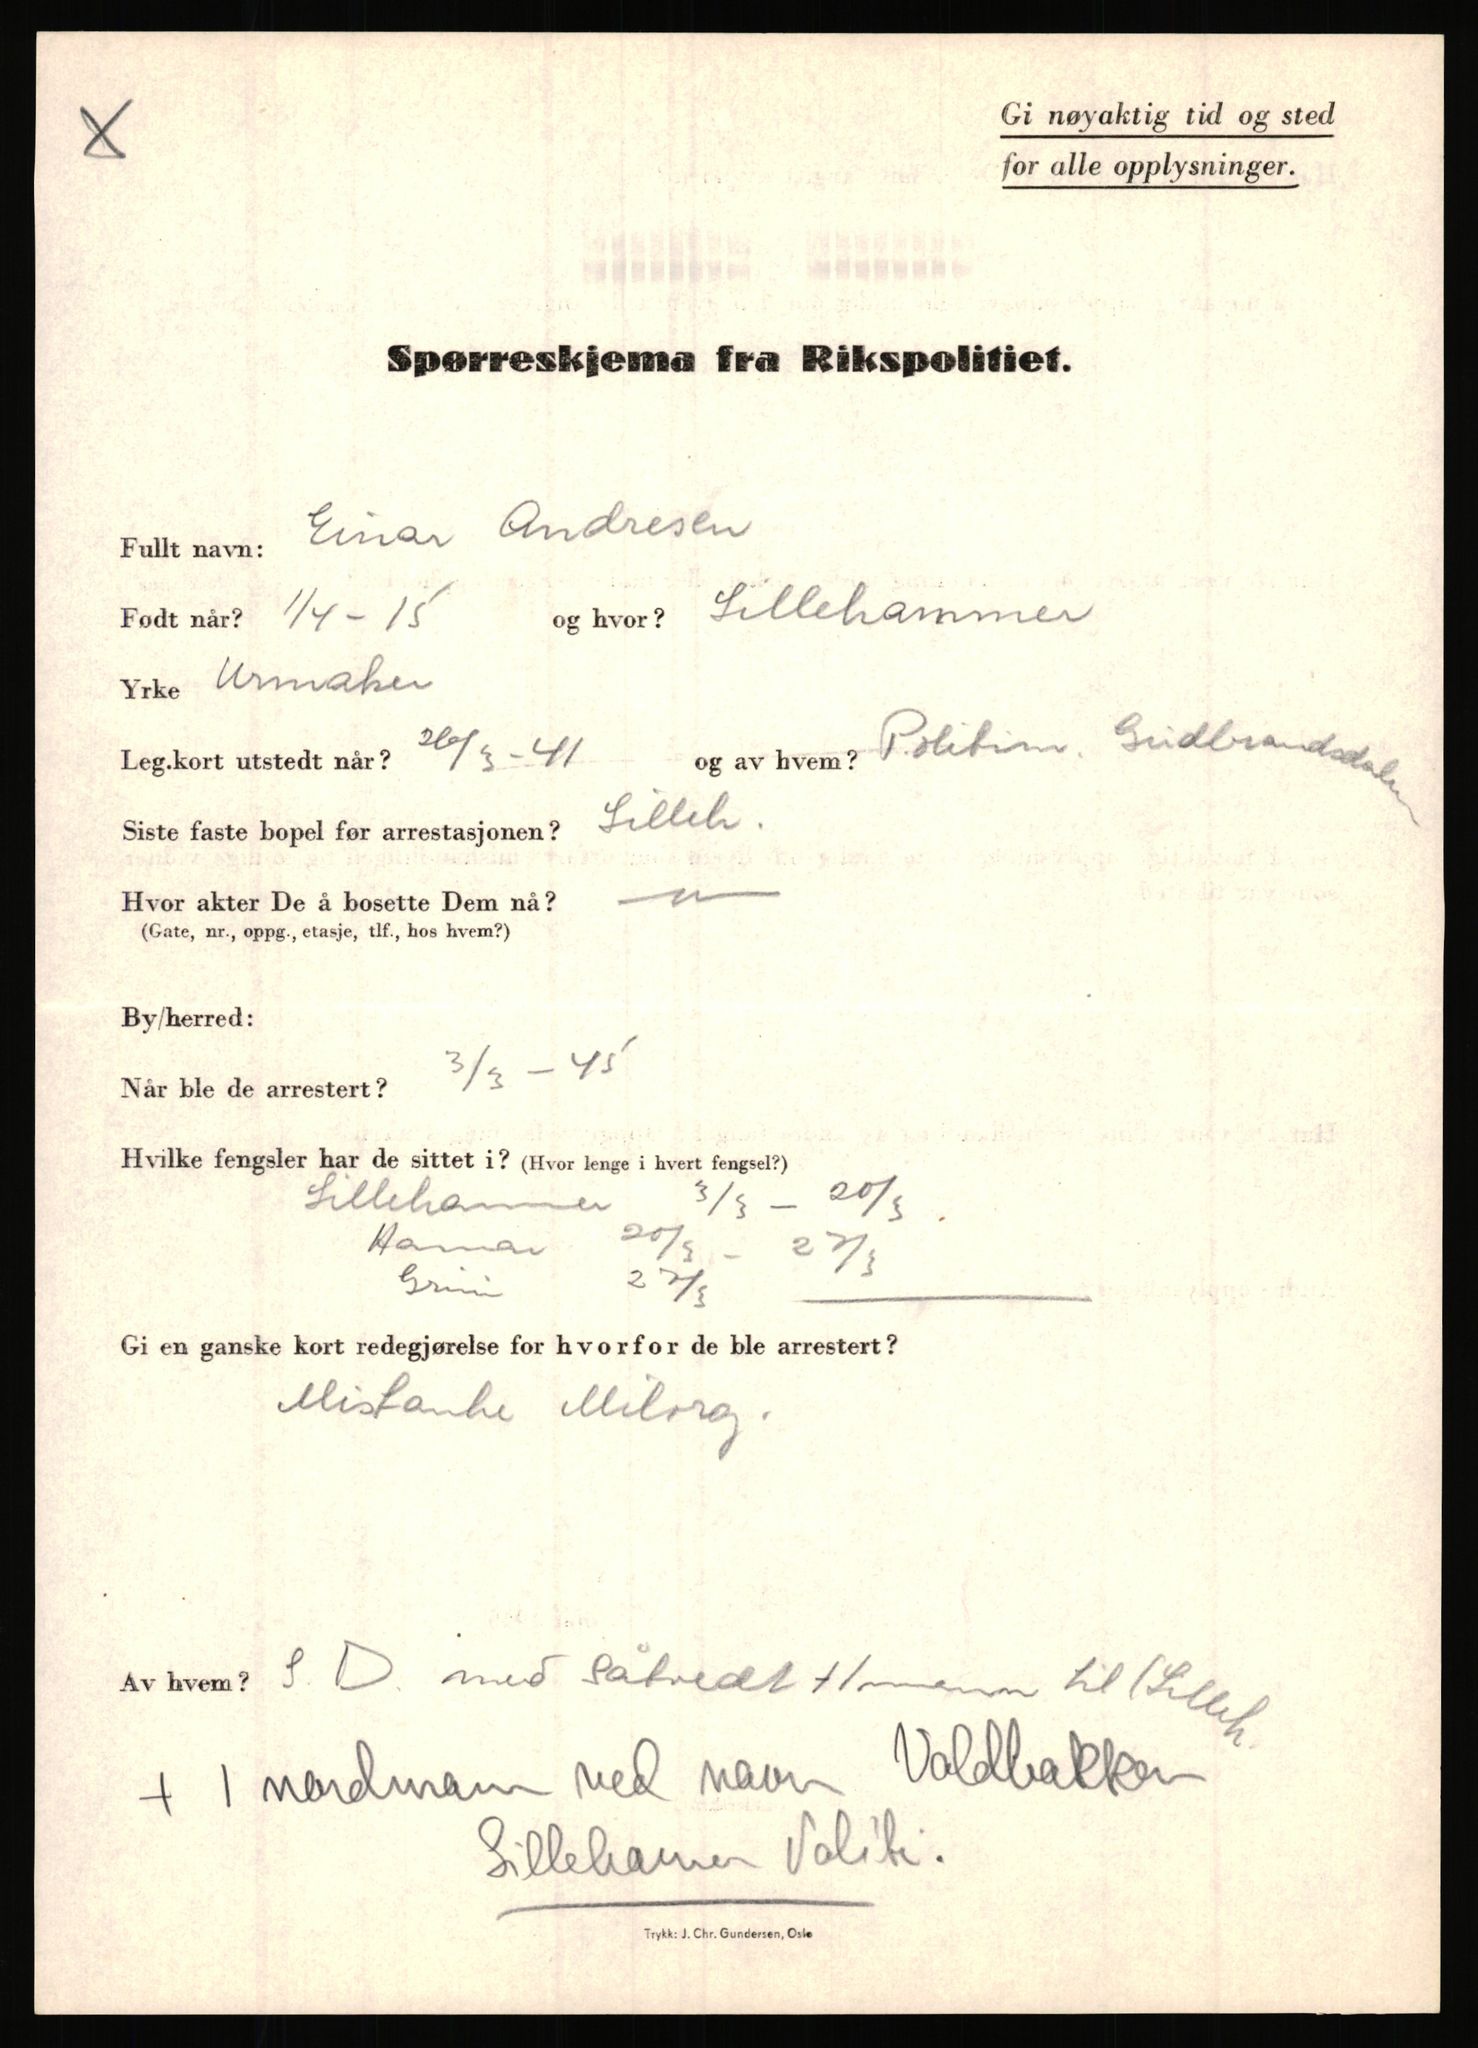 Gi nøyaktig tid og sted
for alle opplysninger.
Spørreskjema fra Rikspolitiet.
Fullt navn: Einar Andresen
Født når? 1/4 - 15 og hvor? Lillehammer
Yrke Urmaker
Leg.kort utstedt når? 26/3 - 41 og av hvem? Politim. Gudbrandsdalen
Siste faste bopel før arrestasjonen? Lilleh.
Hvor akter De å bosette Dem nå? — " —
(Gate, nr., oppg., etasje, tlf., hos hvem?)
By/herred:
Når ble de arrestert? 3/3 - 45
Hvilke fengsler har de sittet i? (Hvor lenge i hvert fengsel?)
Lillehammer 3/3 - 20/3.
Hamar 20/3 - 27/3
Grini 27/3
Gi en ganske kort redegjørelse for hvorfor de ble arrestert?
Mistanke Milorg.
Av hvem? S. D. med Såtvedt + 1 mann til (Lilleh.
+ 1 nordmann ved navn Voldbakken
Lillehamer Politi.
Trykk: J. Chr. Gundersen, Oslo